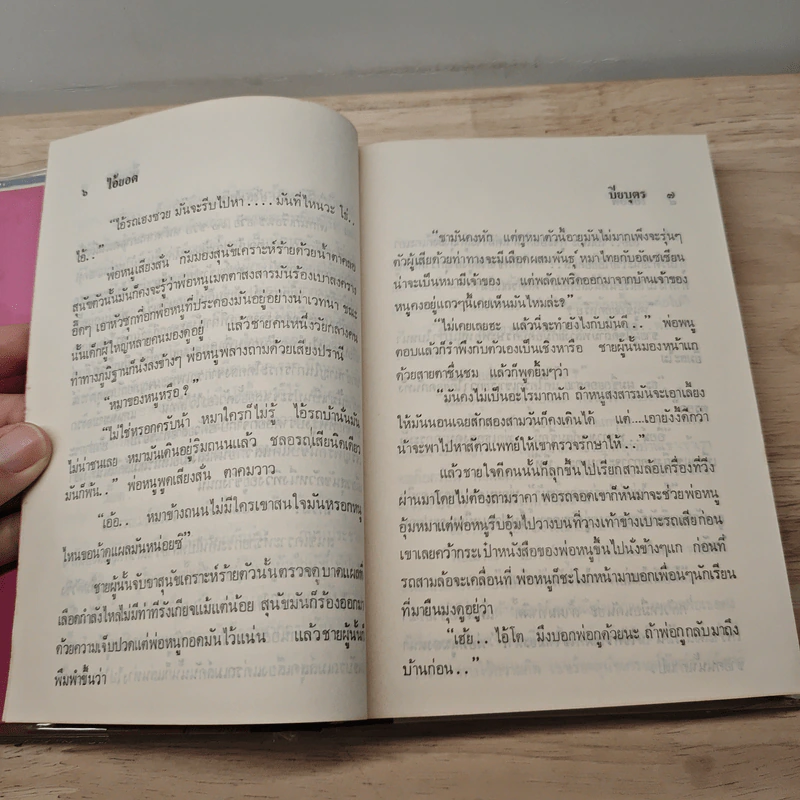 ๖ ไอ้ยอด
“ไอ้รถเฮงซวย มันจะรีบไปหา . . . . มันที่ไหนวะ ไอ้ . .
ไอ้ . .”
พ่อหนูเสียงสั่น ก้มมองสุนัขเคราะห์ร้ายด้วยน้ำตาคลอ
สุนัขตัวนั้นมันก็คงจะรู้ว่าพ่อหนูเมตตาสงสารมันร้องเบาลงคราง
อี๊ดๆ เอาหัวซุกที่อกพ่อหนูที่ประคองมันอยู่อย่างน่าเวทนา ขณะ
นั้นเด็กผู้ใหญ่หลายคนมองดูอยู่ แล้วชายคนหนึ่งวัยกลางคน
ท่าทางภูมิฐานก็นั่งลงข้างๆ พ่อหนูพลางถามด้วยเสียงปรานี
“หมาของหนูหรือ ?”
“ไม่ใช่หรอกครับน้า หมาใครก็ไม่รู้ ไอ้รถบ้านั่นมัน
ไม่น่าชนเลย หมามันเดินอยู่ริมถนนแล้ว ชลอรถเสียนิดเดียว
มันก็พ้น . .” พ่อหนูพูดเสียงสั่น ตาคมวาว
“เอ้อ . . หมาข้างถนนไม่มีใครเขาสนใจมันหรอกหนู
ไหนขอน้าดูแผลมันหน่อยซิ”
ชายผู้นั้นจับขาสุนัขเคราะห์ร้ายตัวนั้นตรวจดูบาดแผลที่
เลือดกำลังไหลไม่มีท่าทีรังเกียจแม้แต่น้อย สุนัขมันก็ร้องออกมา
ด้วยความเจ็บปวดแต่พ่อหนูกอดมันไว้แน่น แล้วชายผู้นั้นก็
พึมพำขึ้นว่า
ปิยบุตร ๗
“ขามันคงหัก แต่ดูหมาตัวนี้อายุมันไม่มากเพิ่งจะรุ่นๆ
ตัวผู้เสียด้วยท่าทางจะมีเลือดผสมพันธุ์ หมาไทยกับอัลเซเชียน
น่าจะเป็นหมามีเจ้าของ แต่พลัดเพริดออกมาจากบ้านเจ้าของ
หนูคงอยู่แถวๆ นี้เคยเห็นมันไหมล่ะ?”
“ไม่เคยเลยฮะ แล้วนี่จะทำยังไงกับมันดี . .” พ่อหนู
ตอบแล้วก็รำพึงกับตัวเองเป็นเชิงหารือ ชายผู้นั้นมองหน้าแก
ด้วยสายตาชื่นชม แล้วก็พูดยิ้มๆ ว่า
“มันคงไม่เป็นอะไรมากนัก ถ้าหนูสงสารมันจะเอาเลี้ยง
ให้มันนอนเฉยสักสองสามวันก็คงเดินได้ แต่ ....เอายังงี้ดีกว่า
น้าจะพาไปหาสัตวแพทย์ให้เขาตรวจรักษาให้ . .”
แล้วชายใจดีคนนั้นก็ลุกขึ้นไปเรียกสามล้อเครื่องที่วิ่ง
ผ่านมาโดยไม่ต้องถามราคา พอรถจอดเขาก็หันมาจะช่วยพ่อหนู
อุ้มหมาแต่พ่อหนูรีบอุ้มไปวางบนที่วางเท้าข้างเบาะรถเสียก่อน
เขาเลยคว้ากระเป๋าหนังสือของพ่อหนูขึ้นไปนั่งข้างๆ แก ก่อนที่
รถสามล้อจะเคลื่อนที่ พ่อหนูก็ชะโงกหน้ามาบอกเพื่อนๆ นักเรียน
ที่มายืนมุงดูอยู่ว่า
“เฮ้ย . . ไอ้โต มึงบอกพ่อกูด้วยนะ ถ้าพ่อกูกลับมาถึง
บ้านก่อน . .”